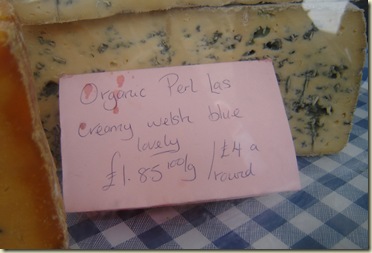 Organic Perl Las
creamy welsh blue
lovely
£1.85 100/g / £4 a
round